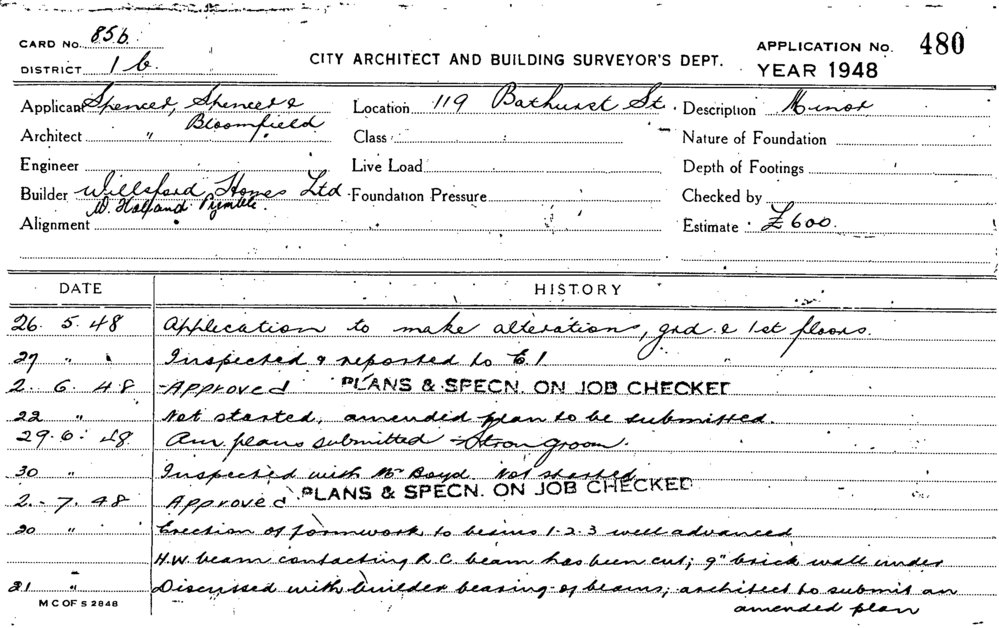 CARD No. 85b. CITY ARCHITECT AND BUILDING SURVEYOR'S DEPT. APPLICATION No. 480
DISTRICT 1 b. YEAR 1948
Applicant Spencer, Spencer & Location 119 Bathurst St. Description Minor
Bloomfield
Architect " Class Nature of Foundation
Engineer Live Load Depth of Footings
Builder Willsford Homes Ltd Foundation Pressure Checked by
W. Holland Pymble.
Alignment Estimate £600.
DATE HISTORY
26. 5. 48 Application to make alterations, grd. & 1st floors.
27 " Inspected & reported to C.I
2. 6. 48 Approved PLANS & SPECN. ON JOB CHECKED
22 " Not started, amended plan to be submitted.
29. 6. 48 Am. plans submitted Strongroom.
30 " Inspected with Mr Boyd. Not started
2. 7. 48 Approved PLANS & SPECN. ON JOB CHECKED
20 " Erection of formwork to beams 1-2-3 well advanced
H.W. beam contacting R.C. beam has been cut; 9" brick wall under
21 " Discussed with builder bearing of beams; architect to submit an
amended plan
M C OF S 2848